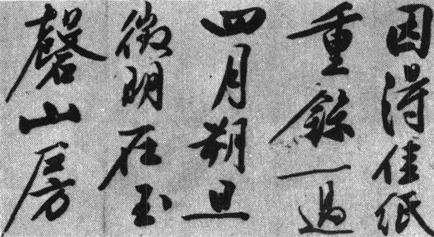 因得佳纸
重餘一過
四月朔旦
徵明在玉
磬山房